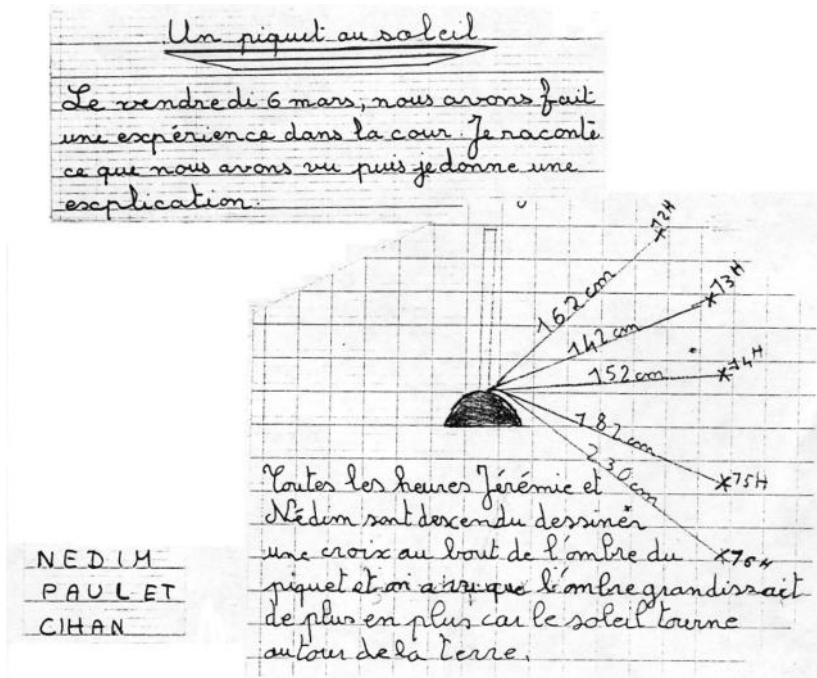 Un piquet au soleil
Le vendredi 6 mars, nous avons fait
une expérience dans la cour. Je raconte
ce que nous avons vu puis je donne une
explication.
12H
162 cm
13H
142 cm
14H
152 cm
187 cm
15H
230 cm
16H
Toutes les heures Jérémie et
Nédim sont descendu dessiner
une croix au bout de l'ombre du
piquet et on a vu que l'ombre grandissait
de plus en plus car le soleil tourne
autour de la Terre.
NEDIM
PAULET
CIHAN